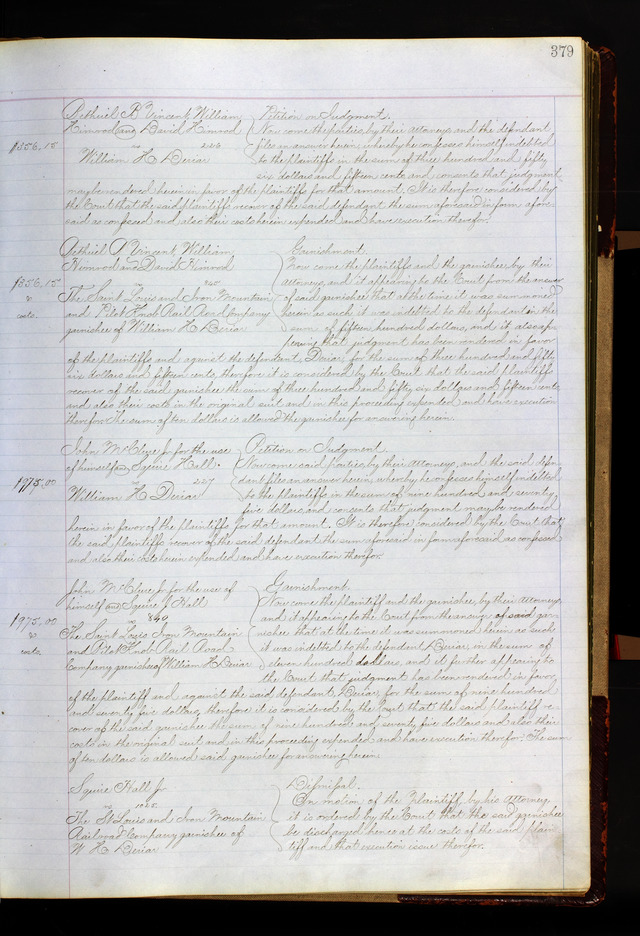 379
Bethuel B Vincent William Petition on Judgment.
Himrod and David Himrod Now come the parties by their attorneys and the defendant
$356.15 vs 226 files an answer herein whereby he confesses himself indebted
William H Deriar to the plaintiffs in the sum of three hundred and fifty
six dollars and fifteen cents and consents that judgment
may be rendered herein in favor of the plaintiffs for that amount. It is therefore considered by
the Court that the said plaintiffs recover of the said defendant the sum aforesaid in form afore
said as confessed and also their costs herein expended and have execution therefor.
Bethuel B Vincent William Garnishment.
Himrod and David Himrod Now come the plaintiffs and the garnishee by their
$356.15 vs attorneys, and it appearing to the Court from the answer
& The Saint Louis and Iron Mountain of said garnishee that at the time it was summoned
costs. and Pilot Knob Rail Road Company herein as such it was indebted to the defendant in the
garnishee of William H Deriar sum of fifteen hundred dollars, and it also ap
pearing that judgment has been rendered in favor
of the plaintiffs and against the defendant Deriar, for the sum of three hundred and fifty
six dollars and fifteen cents, therefore it is considered by the Court that the said plaintiffs
recover of the said garnishee the sum of three hundred and fifty six dollars and fifteen cents,
and also their costs in the original suit and in this proceeding expended and have execution
therefor. The sum of ten dollars is allowed the garnishee for answering herein.
John McClure Jr for the use Petition on Judgment.
of himself and Squire Hall. Now come said parties by their attorneys, and the said defen
$975.00 vs 227 dant files an answer herein, whereby he confesses himself indebted
William H Deriar to the plaintiffs in the sum of nine hundred and seventy
five dollars, and consents that judgment may be rendered
herein in favor of the plaintiffs for that amount. It is therefore considered by the Court that
the said plaintiffs recover of the said defendant the sum aforesaid in form aforesaid as confessed
and also their costs herein expended and have execution therefor.
John McClure Jr for the use of Garnishment.
himself and Squire J Hall Now come the plaintiff and the garnishee, by their attorneys
$975.00 vs 840 and it appearing to the Court from the answer of said gar
& The Saint Louis Iron Mountain nishee that at the time it was summoned herein as such
costs. and Pilot Knob Rail Road it was indebted to the defendant Deriar in the sum of
Company garnishee of William H Deriar eleven hundred dollars, and it further appearing to
the Court that judgment has been rendered in favor
of the plaintiff and against the said defendant Deriar for the sum of nine hundred
and seventy five dollars, therefore it is considered by the Court that the said plaintiff re
cover of the said garnishee the sum of nine hundred and seventy five dollars and also their
costs in the original suit and in this proceeding expended and have execution therefor. The sum
of ten dollars is allowed said garnishee for answering herein.
Squire Hall Jr Dismissal.
vs On motion of the Plaintiff, by his Attorney
The St Louis and Iron Mountain it is ordered by the Court that the said garnishee
Railroad Company garnishee of be discharged hence at the costs of the said plain
W H Deriar tiff and that execution issue therefor.